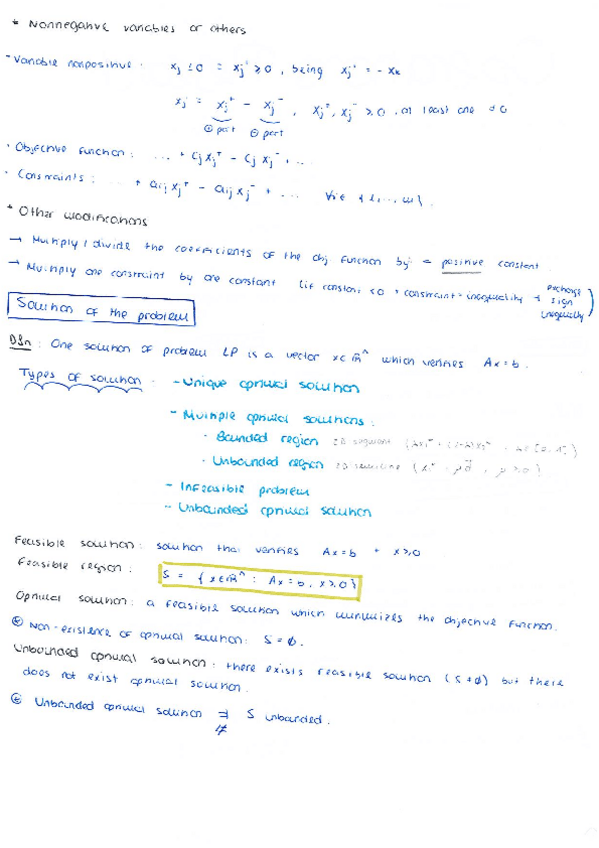 * Nonnegative variables or others
- Variable nonpositive: xj ≤ 0 = xj' ≥ 0, being xj' = - xk
xj = xj⁺ - xj⁻, xj⁺, xj⁻ ≥ 0, at least one = 0
⊕ part ⊖ part
· Objective function: ... + cj xj⁺ - cj xj⁻ + ...
· Constraints: ... + aij xj⁺ - aij xj⁻ + ... ∀i ∈ {1, ... m}.
* Other modifications
→ Multiply / divide the coefficients of the obj function by a positive constant
→ Multiply one constraint by one constant (if constant < 0 + constraint = inequality → exchange sign inequality)
Solution of the problem
Dfn: One solution of problem LP is a vector x ∈ ℝⁿ which verifies Ax = b.
Types of solution - Unique optimal solution
- Multiple optimal solutions:
· Bounded region segment
· Unbounded region
- Infeasible problem
- Unbounded optimal solution
Feasible solution: solution that verifies Ax = b + x ≥ 0
Feasible region: S = { x ∈ ℝⁿ : Ax = b, x ≥ 0 }
Optimal solution: a feasible solution which minimizes the objective function.
Non-existence of optimal solution: S = ∅.
Unbounded optimal solution: there exists feasible solution (S ≠ ∅) but there
does not exist optimal solution.
Unbounded optimal solution ⇒ S unbounded.
⇍